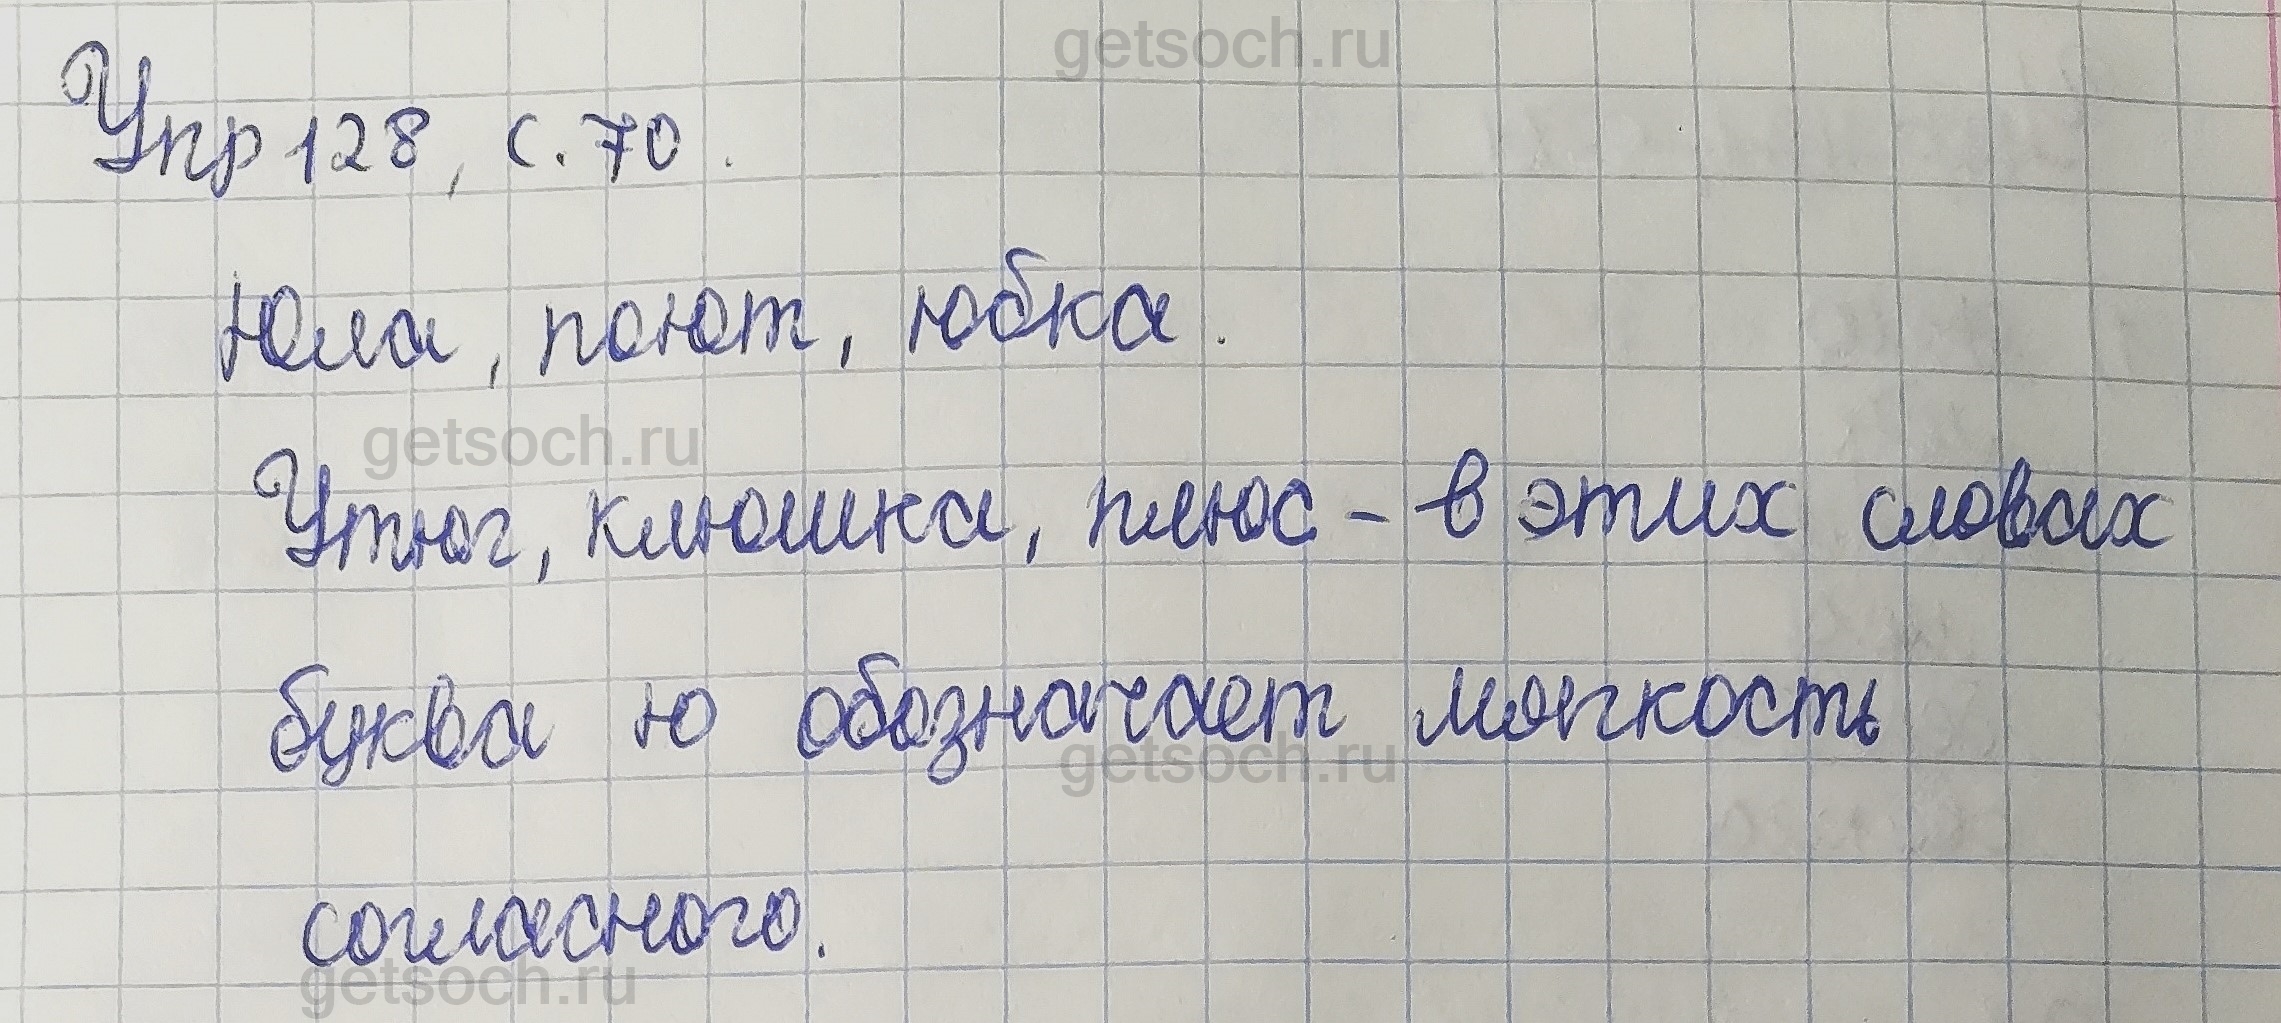 getsoch.ru
Упр 128, с. 70.
Юла, поют, юбка.
getsoch.ru
Утюг, клюшка, плюс - в этих словах
буква ю обозначает мягкость
getsoch.ru
согласного.
getsoch.ru